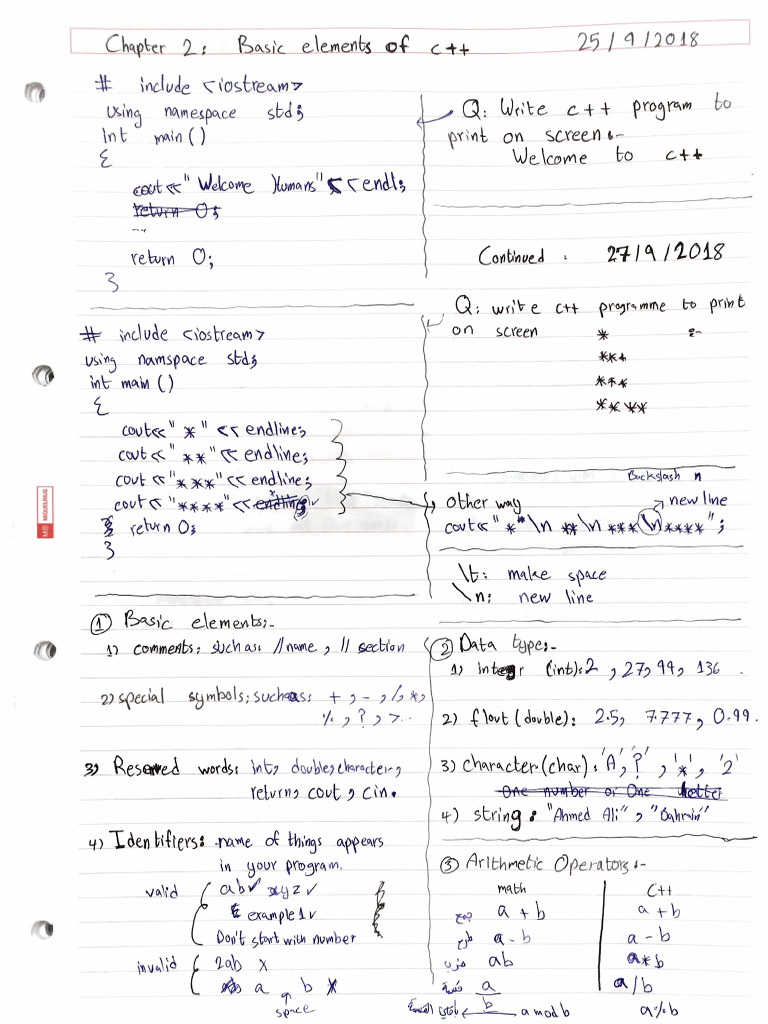 Chapter 2: Basic elements of c++
25/9/2018
# include <iostream>
using namespace std;
Int main()
{
cout<<"Welcome Humans"<<endl;
return 0;
return 0;
}
Q: Write c++ program to
print on screen:-
Welcome to c++
Continued. 27/9/2018
# include <iostream>
using namspace std;
int main()
{
cout<<"*"<<endline;
cout<<"**"<<endline;
cout<<"***"<<endline;
cout<<"****"<<endline;
return 0;
}
Q: write c++ programme to print
on screen :-
*
***
***
****
Backslash n
other way → new line
cout<<"*"\n **\n ***\n****";
\t: make space
\n: new line
① Basic elements:-
1) comments; such as: //name, // section
2) special symbols; such as: +, -, /, *,
%, ?, >..
3) Reserved words: int, double, character,
return, cout, cin.
4) Identifiers: name of things appears
in your program.
valid ab✓ xyz✓
example1✓
Don't start with number
invalid 2ab x
a b x
space
② Data type:-
1) integr (int): 2, 27, 99, 136.
2) flout (double): 2.5, 7.777, 0.99.
3) character (char): 'A', '?', '*', '2'
One number or One letter
4) string: "Ahmed Ali", "Bahrain"
③ Arithmetic Operators:-
math C++
جمع a + b a + b
طرح a - b a - b
ضرب ab a*b
قسمة a/b a/b
باقي القسمة ← a mod b a%b
MIQUELRIUS